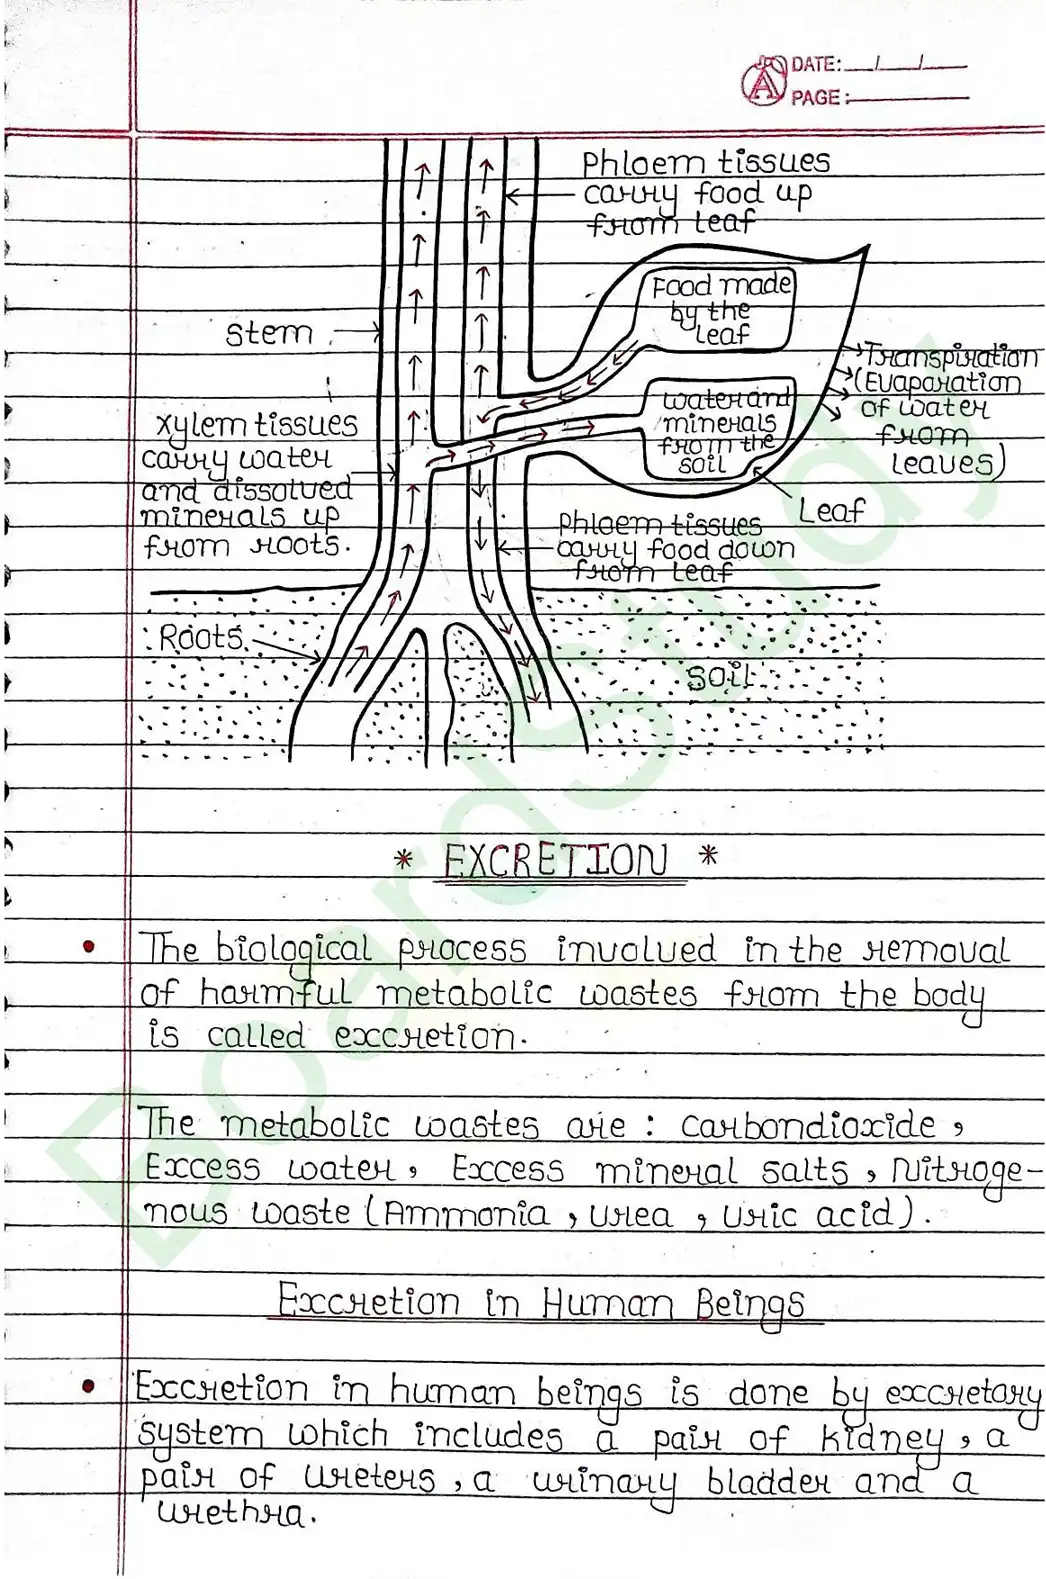 DATE: / /
PAGE:
Phloem tissues
carry food up
from leaf
Food made
by the
leaf
stem
Transpiration
(Evaporation
of water
from
leaves)
water and
minerals
from the
soil
xylem tissues
carry water
and dissolved
minerals up
from roots.
Leaf
Phloem tissues
carry food down
from leaf
Roots
Soil
* EXCRETION *
• The biological process involved in the removal
of harmful metabolic wastes from the body
is called excretion.
The metabolic wastes are : carbondioxide,
Excess water, Excess mineral salts, Nitroge-
nous waste (Ammonia, urea, uric acid).
Excretion in Human Beings
• Excretion in human beings is done by excretory
system which includes a pair of kidney, a
pair of ureters, a urinary bladder and a
urethra.
BoardStudy